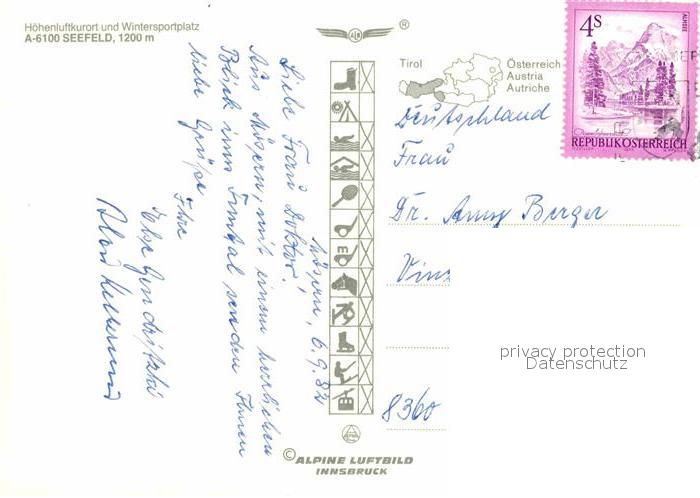 Höhenluftkurort und Wintersportplatz
A-6100 SEEFELD, 1200 m
Mösern, 6.9.82
Liebe Frau Doktor!
Aus Mösern, mit einem herrlichen
Blick ins Inntal senden Ihnen
liebe Grüße
Ihre
Else
®
Tirol
Österreich
Austria
Autriche
4S
ALMSEE
REPUBLIK ÖSTERREICH
Deutschland
Frau
Dr. Anny Berger
8360
privacy protection
Datenschutz
© ALPINE LUFTBILD
INNSBRUCK